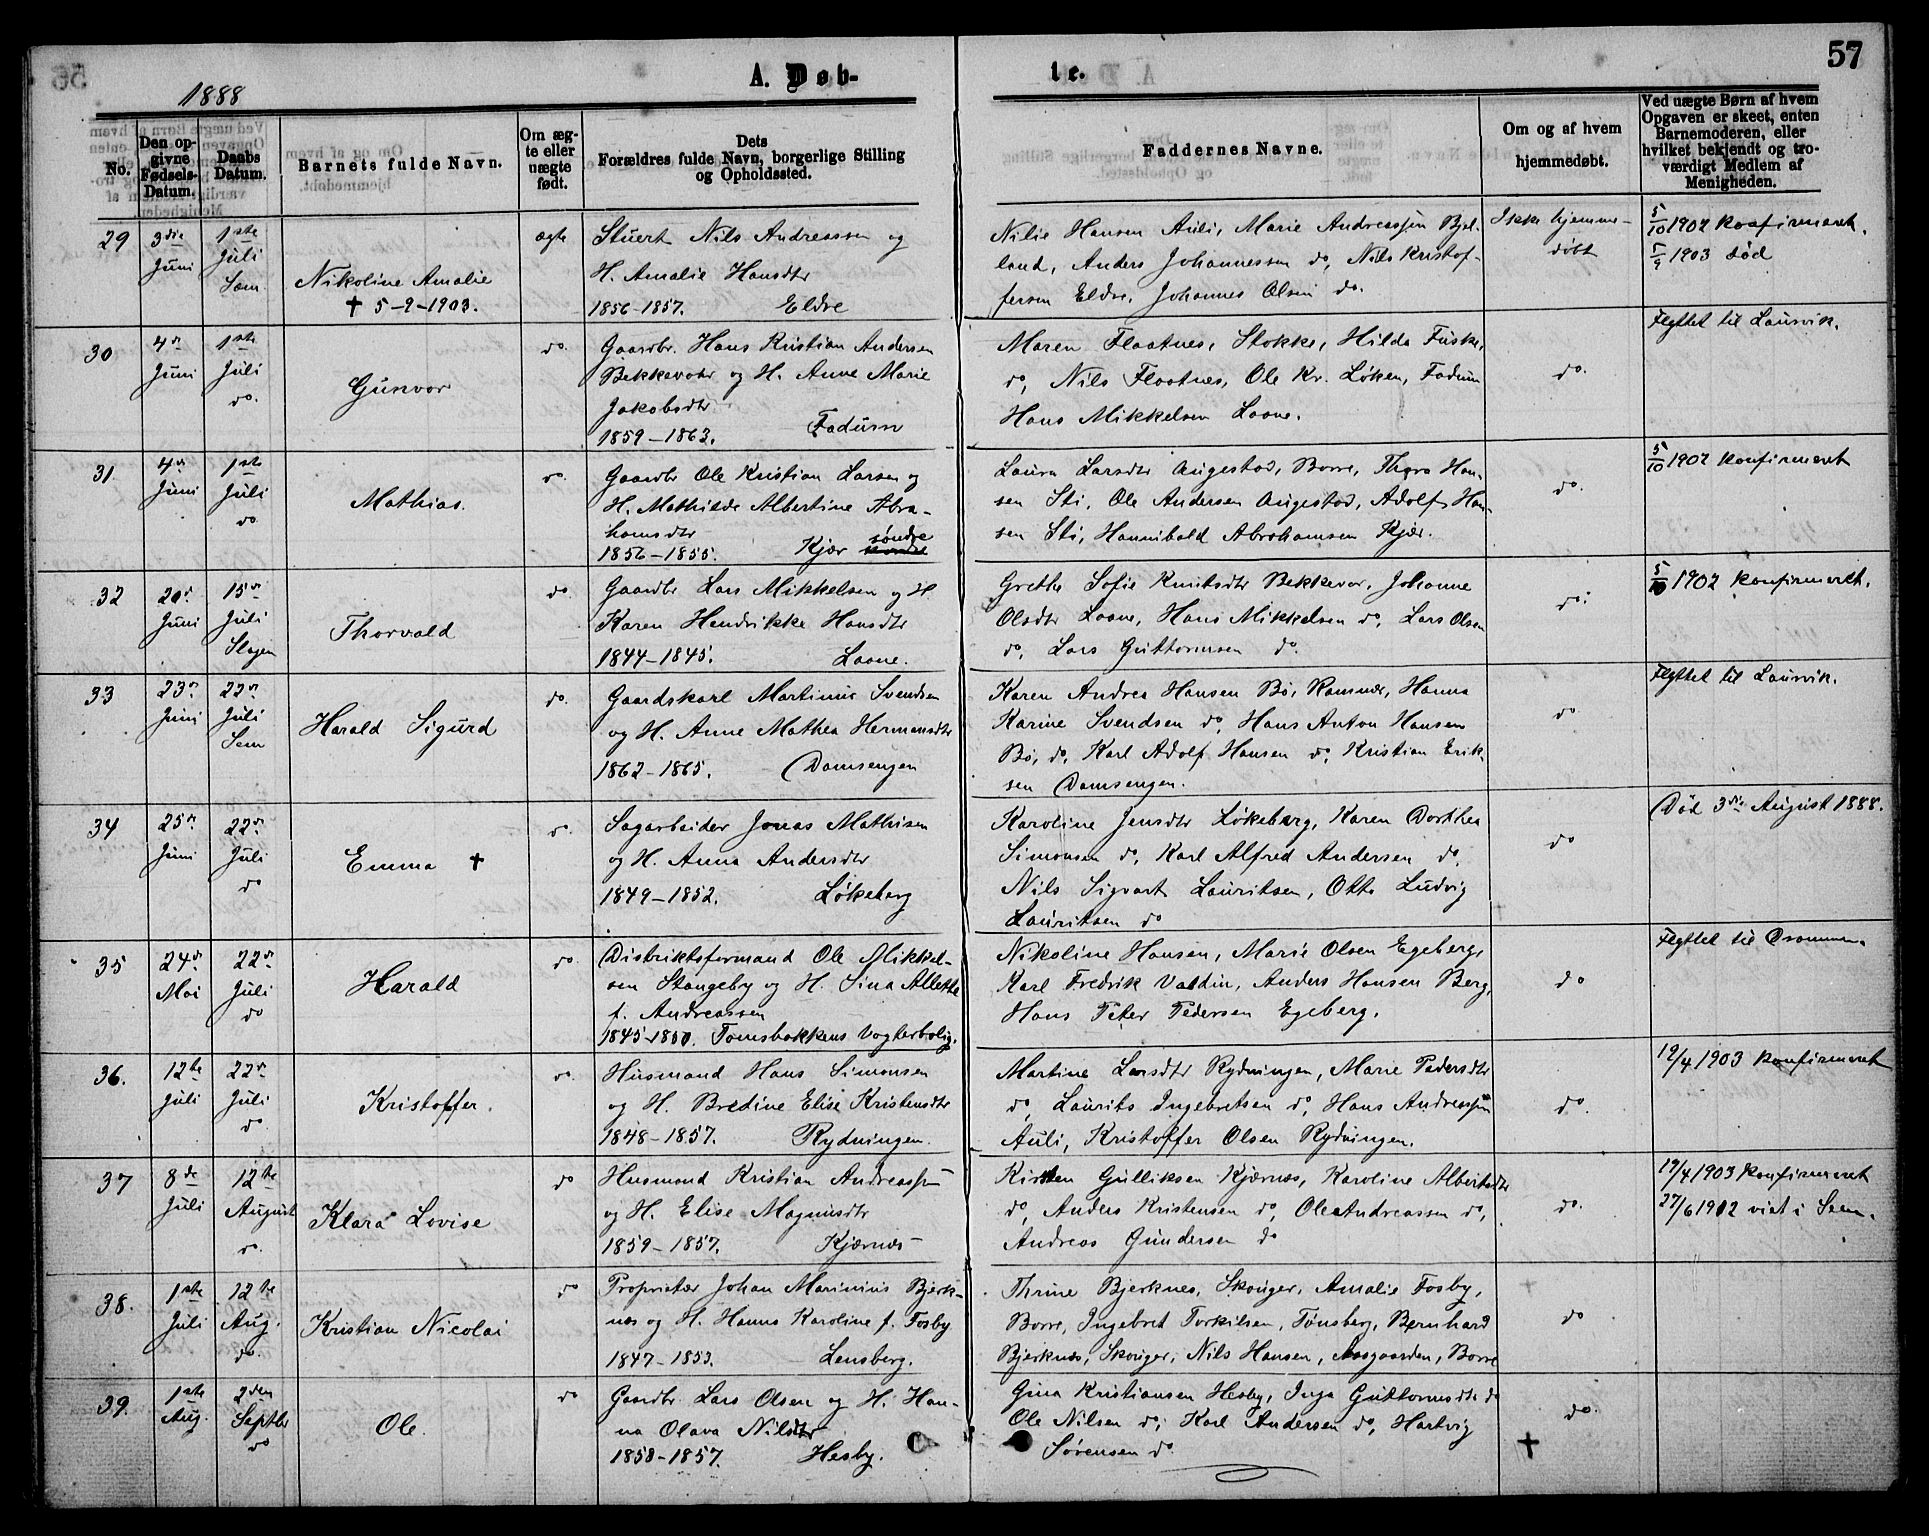 57
1888
A. Døb-
te.
No.
Den op-
givne
Fødsels-
Datum.
Daabs
Datum.
Barnets fulde Navn.
Om æg-
te eller
uægte
født.
Dets
Forældres fulde Navn, borgerlige Stilling
og Opholdssted.
Faddernes Navne.
Om og af hvem
hjemmedøbt.
Ved uægte Børn af hvem
Opgaven er skeet, enten
Barnemoderen, eller
hvilket bekjendt og tro-
værdigt Medlem af
Menigheden.
29
3die
Juni
1ste
Juli
Sem
Nikoline Amalie
† 5-9-1903.
ægte
Stuert Nils Andreassen og
H. Amalie Hansdtr
1856-1857. Eldre
Nilie Hansen Auli, Marie Andreassen Bjel-
land, Anders Johannessen do, Nils Kristof-
fersen Eldre, Johannes Olsen do.
Ikke hjemme-
døbt
5/10 1902 konfirmeret.
5/9 1903 død
30
4de
Juni
1ste
Juli
do.
Gunvor
do
Gaardbr. Hans Kristian Andersen
Bekkevahr og H. Anne Marie
Jakobsdtr
1859-1863. Fadum
Maren Flaatnes, Stokke, Hilda Fuske,
do, Nils Flaatnes, Ole Kr. Løken, Fadum
Hans Mikkelsen Laane.
do.
Flyttet til Laurvik.
31
4de
Juni
1ste
Juli
do
Mathias.
do.
Gaardbr Ole Kristian Larsen og
H. Mathilde Albertine Abra-
hamsdtr søndre
1856-1855. Kjær
Laura Larsdtr Augestad, Borre, Thora Han-
sen Sti, Ole Andersen Augestad, Adolf Han-
sen Sti, Hannibald Abrahamsen Kjær.
do.
5/10 1902 konfirmeret
32
20de
Juni
15de
Juli
Slagen
Thorvald
do
Gaardbr Lars Mikkelsen og H
Karen Hendrikke Hansdtr
1844-1845. Laane.
Grethe Sofie Knutsdtr Bekkevar, Johanne
Olsdtr Laane, Hans Mikkelsen do, Lars Olsen
do, Lars Guttormsen do.
do.
5/10 1902 konfirmeret.
33
23de
Juni
22de
Juli
Sem
Harald Sigurd
do.
Gaardskarl Martinius Svendsen
og H. Anne Mathea Hermansdtr
1862-1865. Damsengen
Karen Andrea Hansen Bø, Ramnæs, Hanna
Karine Svendsen do, Hans Anton Hansen
Bø, do, Karl Adolf Hansen do, Kristian Erik-
sen Damsengen.
do
Flyttet til Laurvik.
34
25de
Juni
22de
Juli
do
Emma †
do.
Sagarbeider Jonas Mathisen
og H. Anna Andersdtr
1849-1852. Løkeberg
Karoline Jensdtr Løkeberg, Karen Dorthea
Simonsen do, Karl Alfred Andersen do,
Nils Sigvart Lauritsen, Otto Ludvig
Lauritsen do
do
Død 3die August 1888.
35
24de
Mai
22de
Juli
do
Harald
do
Distriktsformand Ole Mikkel-
sen Stangeby og H. Sina Allette
f. Andreassen
1845-1850. Tomsbakkens Vogterbolig.
Nikoline Hansen, Marie Olsen Egeberg,
Karl Fredrik Valdin, Anders Hansen Berg,
Hans Peter Pedersen Egeberg.
do
Flyttet til Drammen
36.
12te
Juli
22de
Juli
do.
Kristoffer.
do.
Husmand Hans Simonsen
og H. Bredine Elise Kristensdtr
1848-1857. Rydningen.
Martine Larsdtr Rydningen, Marie Pedersdtr
do, Laurits Ingebretsen do, Hans Andreassen
Auli, Kristoffer Olsen Rydningen.
do.
19/4 1903 konfirmeret
37
8de
Juli
12te
August
do.
Klara Lovise
do
Husmand Kristian Andreassen
og H. Elise Magnusdtr
1859-1857. Kjærnæs
Kirsten Gulliksen Kjærnæs, Karoline Albertsdtr
do, Anders Kristensen do, Ole Andreassen do,
Andreas Gundersen do
do.
19/4 1903 konfirmeret
27/6 1912 viet i Sem.
38.
1ste
Juli
12te
Aug.
do.
Kristian Nicolai
do
Proprietær Johan Marinius Bjerk-
næs og H. Hanna Karoline f. Fosby
1847-1853. Lensberg.
Thrine Bjerknes, Skouger, Amalie Fosby,
Borre, Ingebret Torkilsen, Tønsberg, Bernhard
Bjerknæs, Skouger, Nils Hansen, Aasgaarden, Borre
do
39.
1ste
Aug.
2den
Septbr
do
Ole.
do
Gaardbr. Lars Olsen og H. Han-
na Olava Nilsdtr
1858-1857. Hesby.
Gina Kristiansen Hesby, Inga Guttormsdtr do
Ole Nilsen do, Karl Andersen do, Hartvig
Sørensen do
do.
†